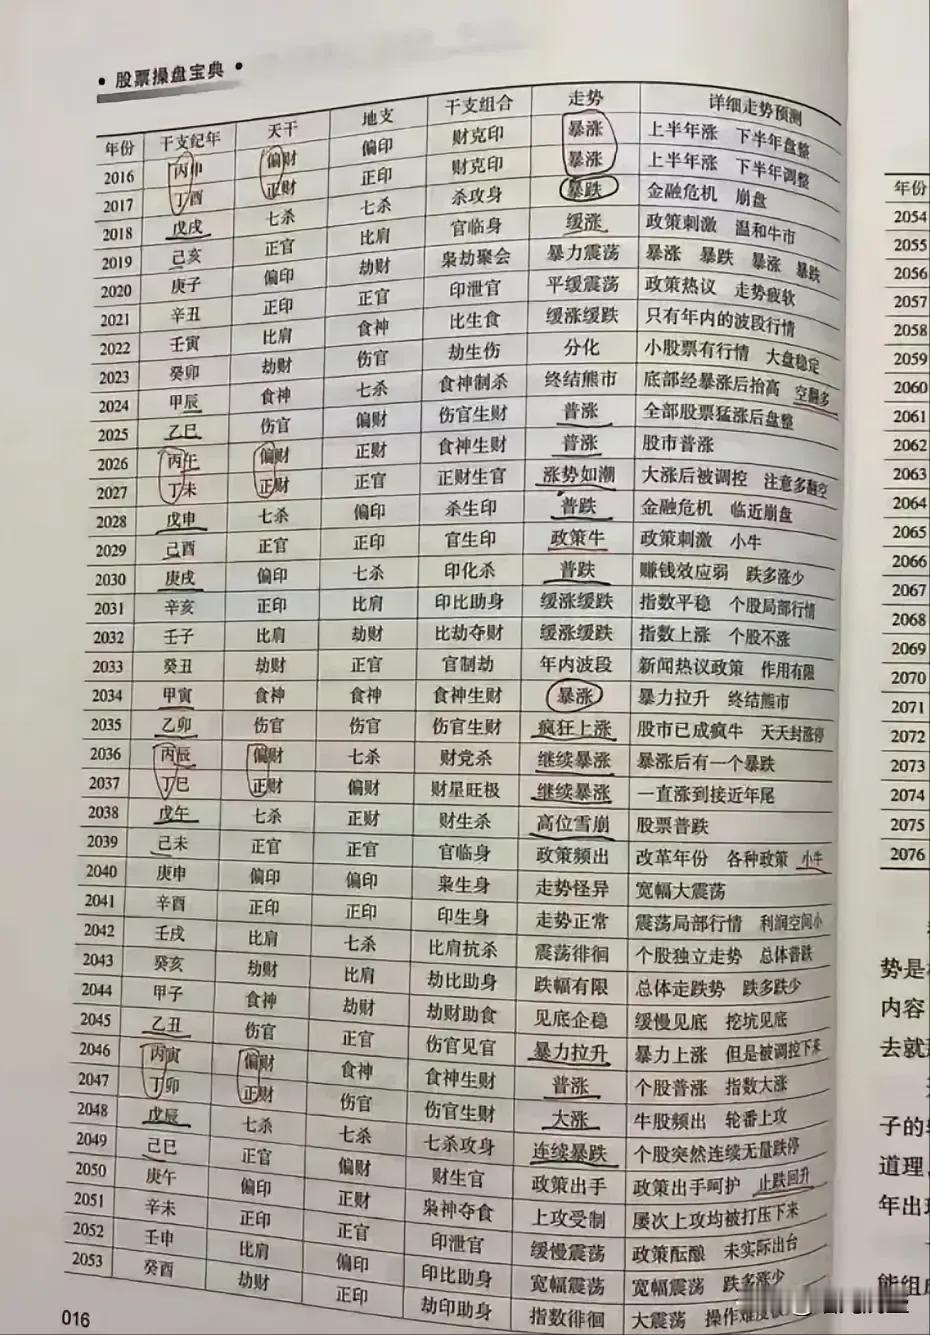 • 股票操盘宝典 •
年份 干支纪年 天干 地支 干支组合 走势 详细走势预测
2016 丙申 偏财 偏印 财克印 暴涨 上半年涨 下半年盘整
2017 丁酉 正财 正印 财克印 暴涨 上半年涨 下半年调整
2018 戊戌 七杀 七杀 杀攻身 暴跌 金融危机 崩盘
2019 己亥 正官 比肩 官临身 缓涨 政策刺激 温和牛市
2020 庚子 偏印 劫财 枭劫聚会 暴力震荡 暴涨 暴跌 暴涨 暴跌
2021 辛丑 正印 正官 印泄官 平缓震荡 政策热议 走势疲软
2022 壬寅 比肩 食神 比生食 缓涨缓跌 只有年内的波段行情
2023 癸卯 劫财 伤官 劫生伤 分化 小股票有行情 大盘稳定
2024 甲辰 食神 七杀 食神制杀 终结熊市 底部经暴涨后抬高 空翻多
2025 乙巳 伤官 偏财 伤官生财 普涨 全部股票猛涨后盘整
2026 丙午 偏财 正财 食神生财 普涨 股市普涨
2027 丁未 正财 正官 正财生官 涨势如潮 大涨后被调控 注意多翻空
2028 戊申 七杀 偏印 杀生印 普跌 金融危机 临近崩盘
2029 己酉 正官 正印 官生印 政策牛 政策刺激 小牛
2030 庚戌 偏印 七杀 印化杀 普跌 赚钱效应弱 跌多涨少
2031 辛亥 正印 比肩 印比助身 缓涨缓跌 指数平稳 个股局部行情
2032 壬子 比肩 劫财 比劫夺财 缓涨缓跌 指数上涨 个股不涨
2033 癸丑 劫财 正官 官制劫 年内波段 新闻热议政策 作用有限
2034 甲寅 食神 食神 食神生财 暴涨 暴力拉升 终结熊市
2035 乙卯 伤官 伤官 伤官生财 疯狂上涨 股市已成疯牛 天天封涨停
2036 丙辰 偏财 七杀 财党杀 继续暴涨 暴涨后有一个暴跌
2037 丁巳 正财 偏财 财星旺极 继续暴涨 一直涨到接近年尾
2038 戊午 七杀 正财 财生杀 高位雪崩 股票普跌
2039 己未 正官 正官 官临身 政策频出 改革年份 各种政策 小牛
2040 庚申 偏印 偏印 枭生身 走势怪异 宽幅大震荡
2041 辛酉 正印 正印 印生身 走势正常 震荡局部行情 利润空间小
2042 壬戌 比肩 七杀 比肩抗杀 震荡徘徊 个股独立走势 总体普跌
2043 癸亥 劫财 比肩 劫比助身 跌幅有限 总体走跌势 跌多跌少
2044 甲子 食神 劫财 劫财助食 见底企稳 缓慢见底 挖坑见底
2045 乙丑 伤官 正官 伤官见官 暴力拉升 暴力上涨 但是被调控下来
2046 丙寅 偏财 食神 食神生财 普涨 个股普涨 指数大涨
2047 丁卯 正财 伤官 伤官生财 大涨 牛股频出 轮番上攻
2048 戊辰 七杀 七杀 七杀攻身 连续暴跌 个股突然连续无量跌停
2049 己巳 正官 偏财 财生官 政策出手 政策出手呵护 止跌回升
2050 庚午 偏印 正财 枭神夺食 上攻受制 屡次上攻均被打压下来
2051 辛未 正印 正官 印泄官 缓慢震荡 政策酝酿 未实际出台
2052 壬申 比肩 偏印 印比助身 宽幅震荡 宽幅震荡 跌多涨少
2053 癸酉 劫财 正印 劫印助身 指数徘徊 大震荡 操作难度
016
年份
2054
2055
2056
2057
2058
2059
2060
2061
2062
2063
2064
2065
2066
2067
2068
2069
2070
2071
2072
2073
2074
2075
2076
势是
内容
去就
子的
道理
年出
能组